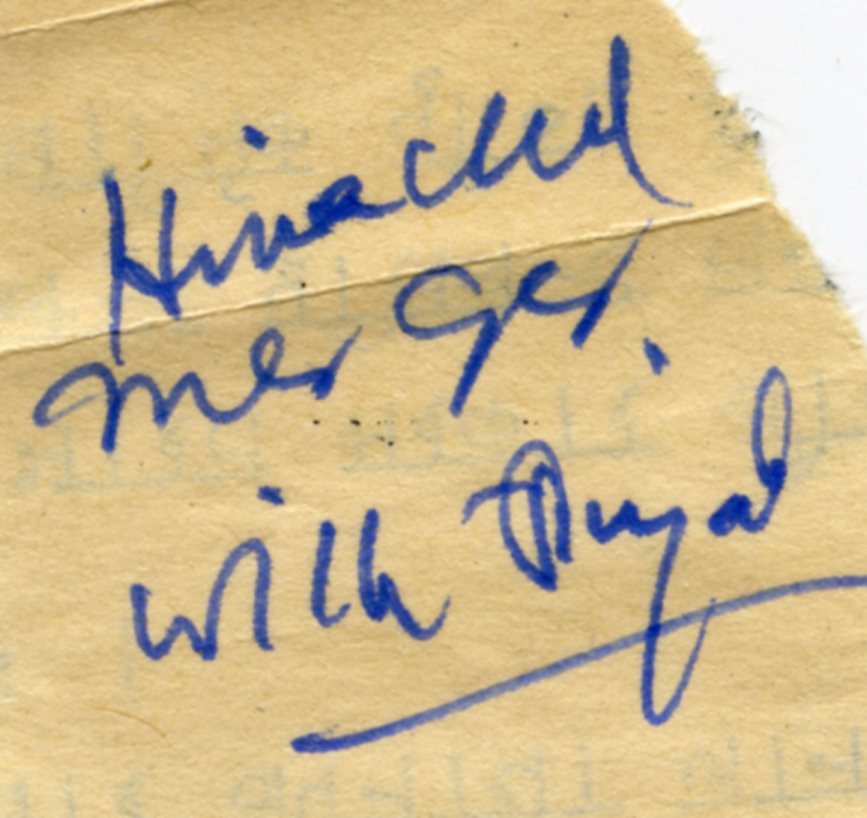 Himachal
merger
with Punjab